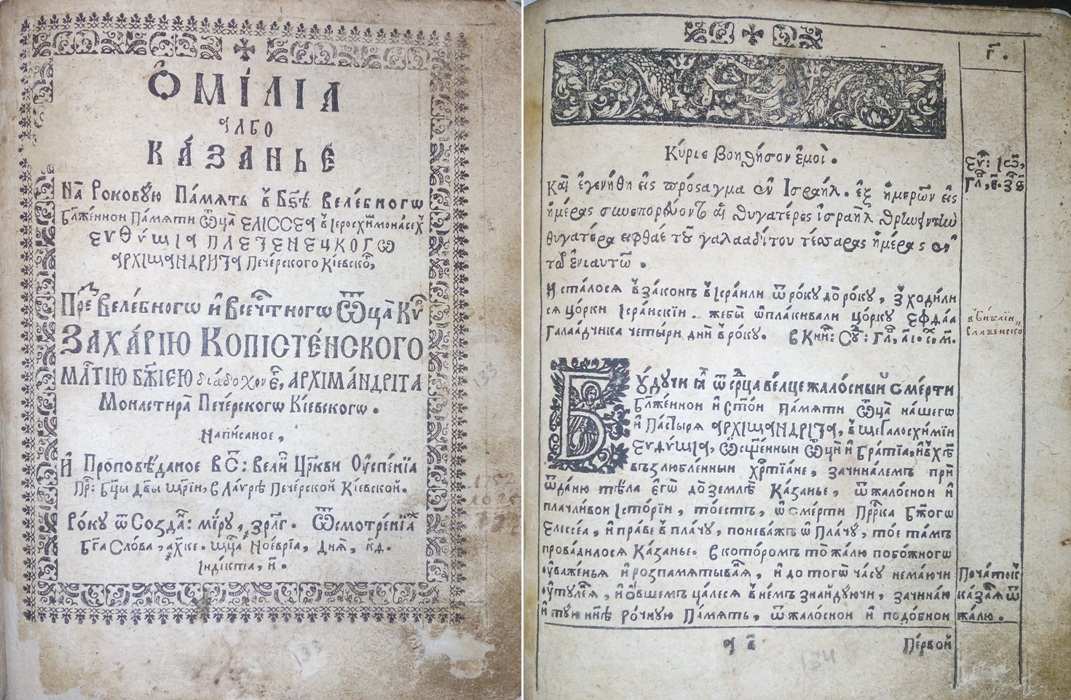 ОМІЛІА
албо
КАЗАНЬЕ
На Роковую Память в Бз҃ѣ Велебного
Блженнои Памяти Ѿца ЕЛІССЕА в Іеросхимонасех
ЕУѲИМІА ПЛЕТЕНЕЦКОГѠ
АРХІМАНДРИТА Печерского Кіевско,
През Велебногѡ и Всечтногѡ Ѿца Кѵ
ЗАХАРІЮ КОПІСТЕНСКОГО
мл҃тію бж҃іею діадохоне, АРХІМАНДРІТА
Монастира Печерскогѡ Кіевскогѡ.
Написаное,
И Проповѣданое в С: Велик Цркви Оуспеніа
Пр: Бцы Двы Мріи, в Лаурѣ Печерской Кіевской.
Року ѿ Созда: миру, ҂зрлг. Ѿ смотреніа
Бга Слова, ҂ахке. Мца Ноеврїа, дня, кд.
Індікта, и.
г҃.
Κύριε βοήθησον ἐμοί.
Καὶ ἐγενήθη εἰς πρόσαγμα ἐν Ισραήλ. ἐξ ἡμερῶν εἰς
ἡμέρας ἐσωπορεύοντο αἱ θυγατέρες ἰσραήλ θρηνεῖν τὴν
θυγατέρα εφθαε τοῦ γαλααδίτου τέσσαρας ἡμέρας ἐν
τῷ ἐνιαυτῶ.
И сталося в законъ в Ісраили ѿ року до року, зходили
ся цорки Ісраискіи. жебы ѡплакивали цорку Єфдаа
Галаадчика четыри дни в року. в Книг: Суд: Гл, аі
в Библіи
славенско
Будучи ѿ срца велце жалосный смерти
Блженнои и Стои Памяти Ѿца нашего
и Пастыря АРХІМАНДРИТА, в Мегалосхимїи
ЕУѲУМІА, Ѡсщенныи Ѿци и Братїа, и в Хѣ
възлюбленныи хрстіане, зачиналем при
ѿданю тѣла его до землѣ Казанье, ѿ жалоснои и
плачливои Історїи, тоестъ, ѿ смерти Прркa Бжого
Єлиссеа, и праве в плачу, поневажъ ѿ Плачу, тое тамъ
провадилося Казанье. в котором то жалю побожного
оуваженья и роспамятываня, и до того часу немаючи
оутуленя, и овшем цалеся в нем знайдуючи, зачинаю
и тую ннѣ рочную Память, ѿ жалоснои и подобнои
Початок
казаня ѿ
жалю.
Первои